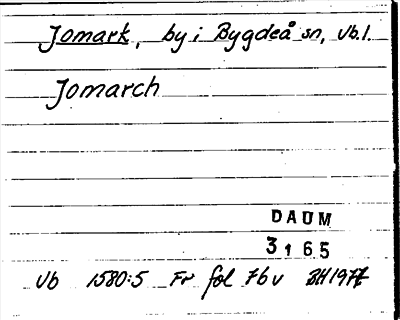 Jomark, by i Bygdeå sn, Vb.l.
Jomarch
DAUM
3165
Vb 1580:5 Fr fol 7bv BH 1977